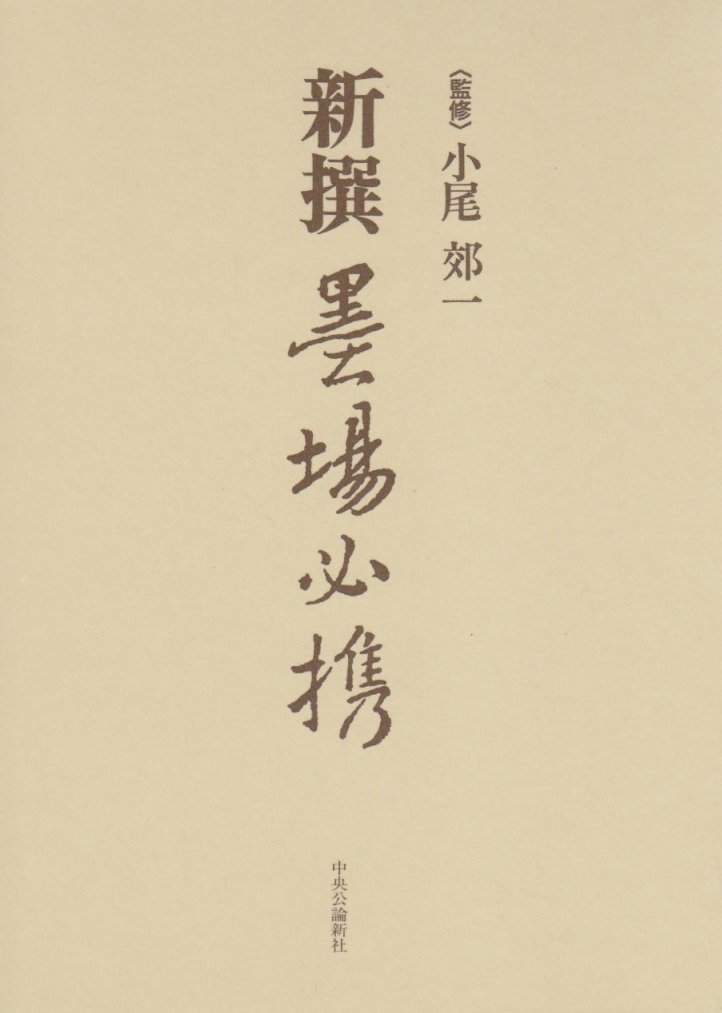 〈監修〉小尾 郊一
新撰 墨場必携
中央公論新社